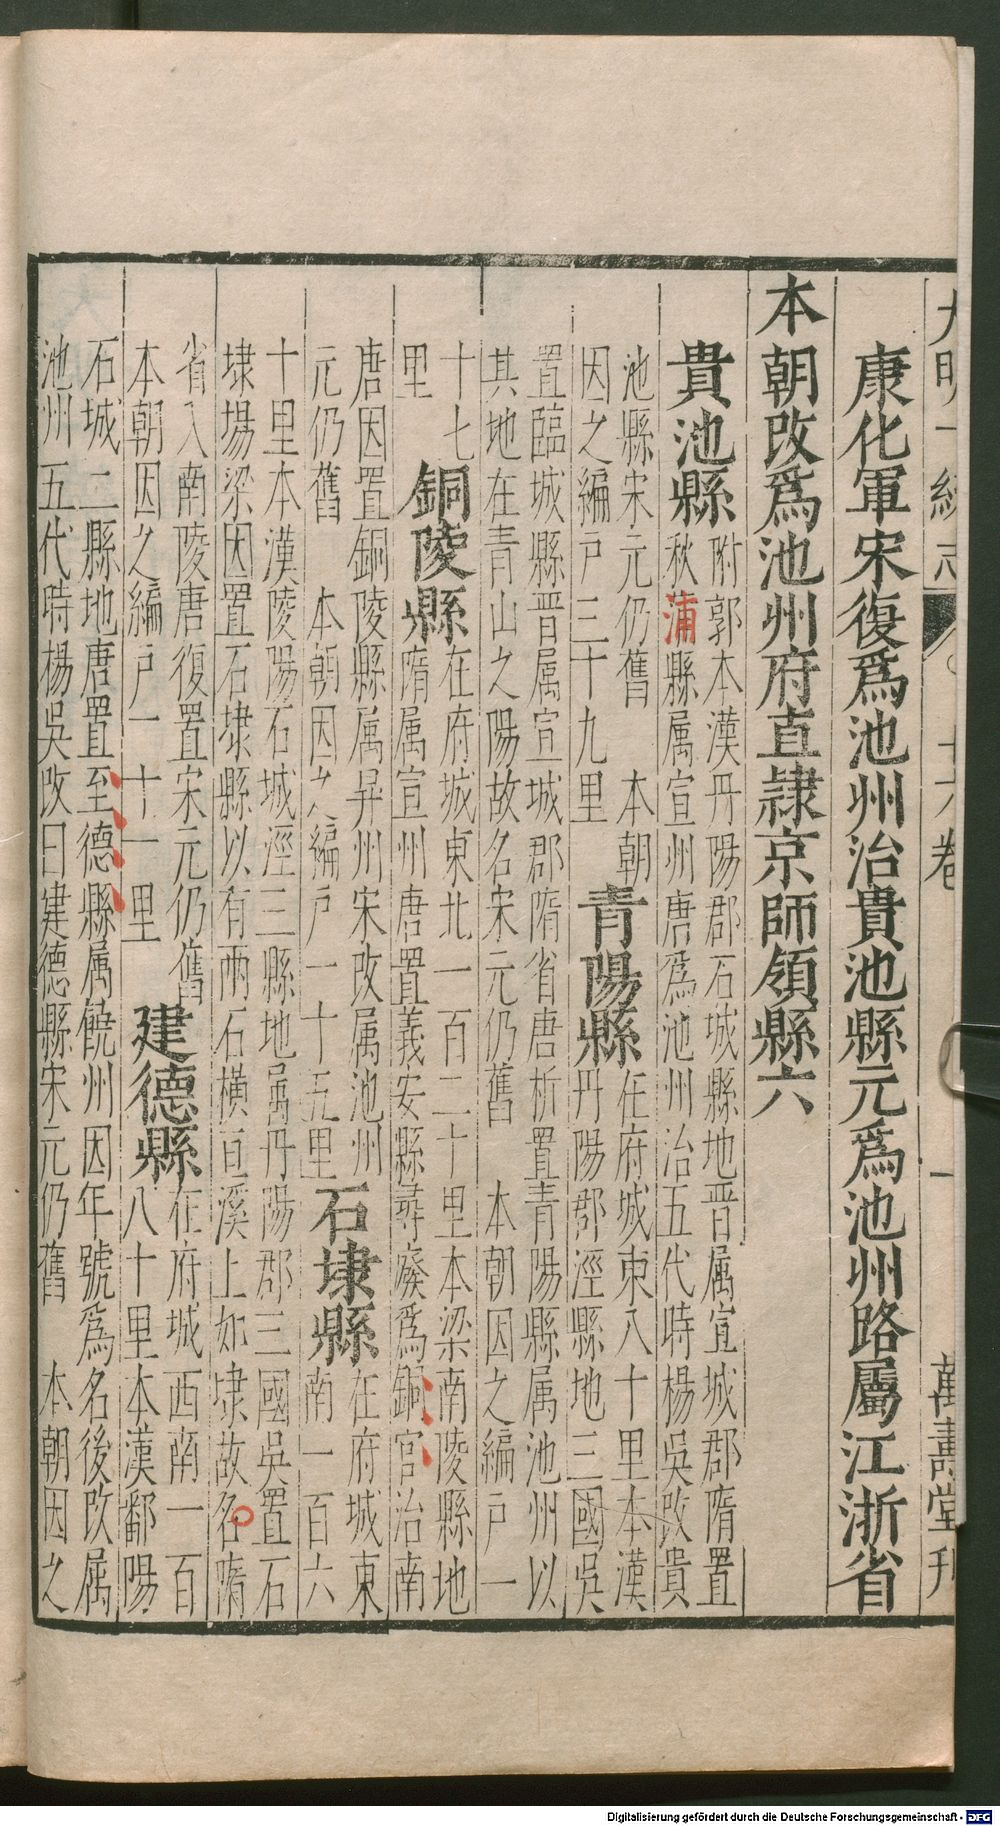 大明一統志 十六卷 一 萬壽堂刊
康化軍宋復爲池州治貴池縣元爲池州路屬江浙省
本朝改爲池州府直隸京師領縣六
貴池縣
附郭本漢丹陽郡石城縣地晋属宣城郡隋置
秋蒲縣属宣州唐爲池州治五代時楊吳改貴
池縣宋元仍舊 本朝
因之編戸三十九里
青陽縣
在府城東八十里本漢
丹陽郡涇縣地三國吳
置臨城縣晋属宣城郡隋省唐析置青陽縣属池州以
其地在青山之陽故名宋元仍舊 本朝因之編戸一
十七
里
銅陵縣
在府城東北一百二十里本梁南陵縣地
隋属宣州唐置義安縣尋廢爲銅官治南
唐因置銅陵縣属昇州宋改属池州
元仍舊 本朝因之編戸一十五里
石埭縣
在府城東
南一百六
十里本漢陵陽石城涇三縣地属丹陽郡三國吳置石
埭場梁因置石埭縣以有兩石橫亘溪上如埭故名隋
省入南陵唐復置宋元仍舊
本朝因之編戸一十一里
建德縣
在府城西南一百
八十里本漢鄱陽
石城二縣地唐置至德縣属饒州因年號爲名後改属
池州五代時楊吳改曰建德縣宋元仍舊 本朝因之
Digitalisierung gefördert durch die Deutsche Forschungsgemeinschaft - DFG